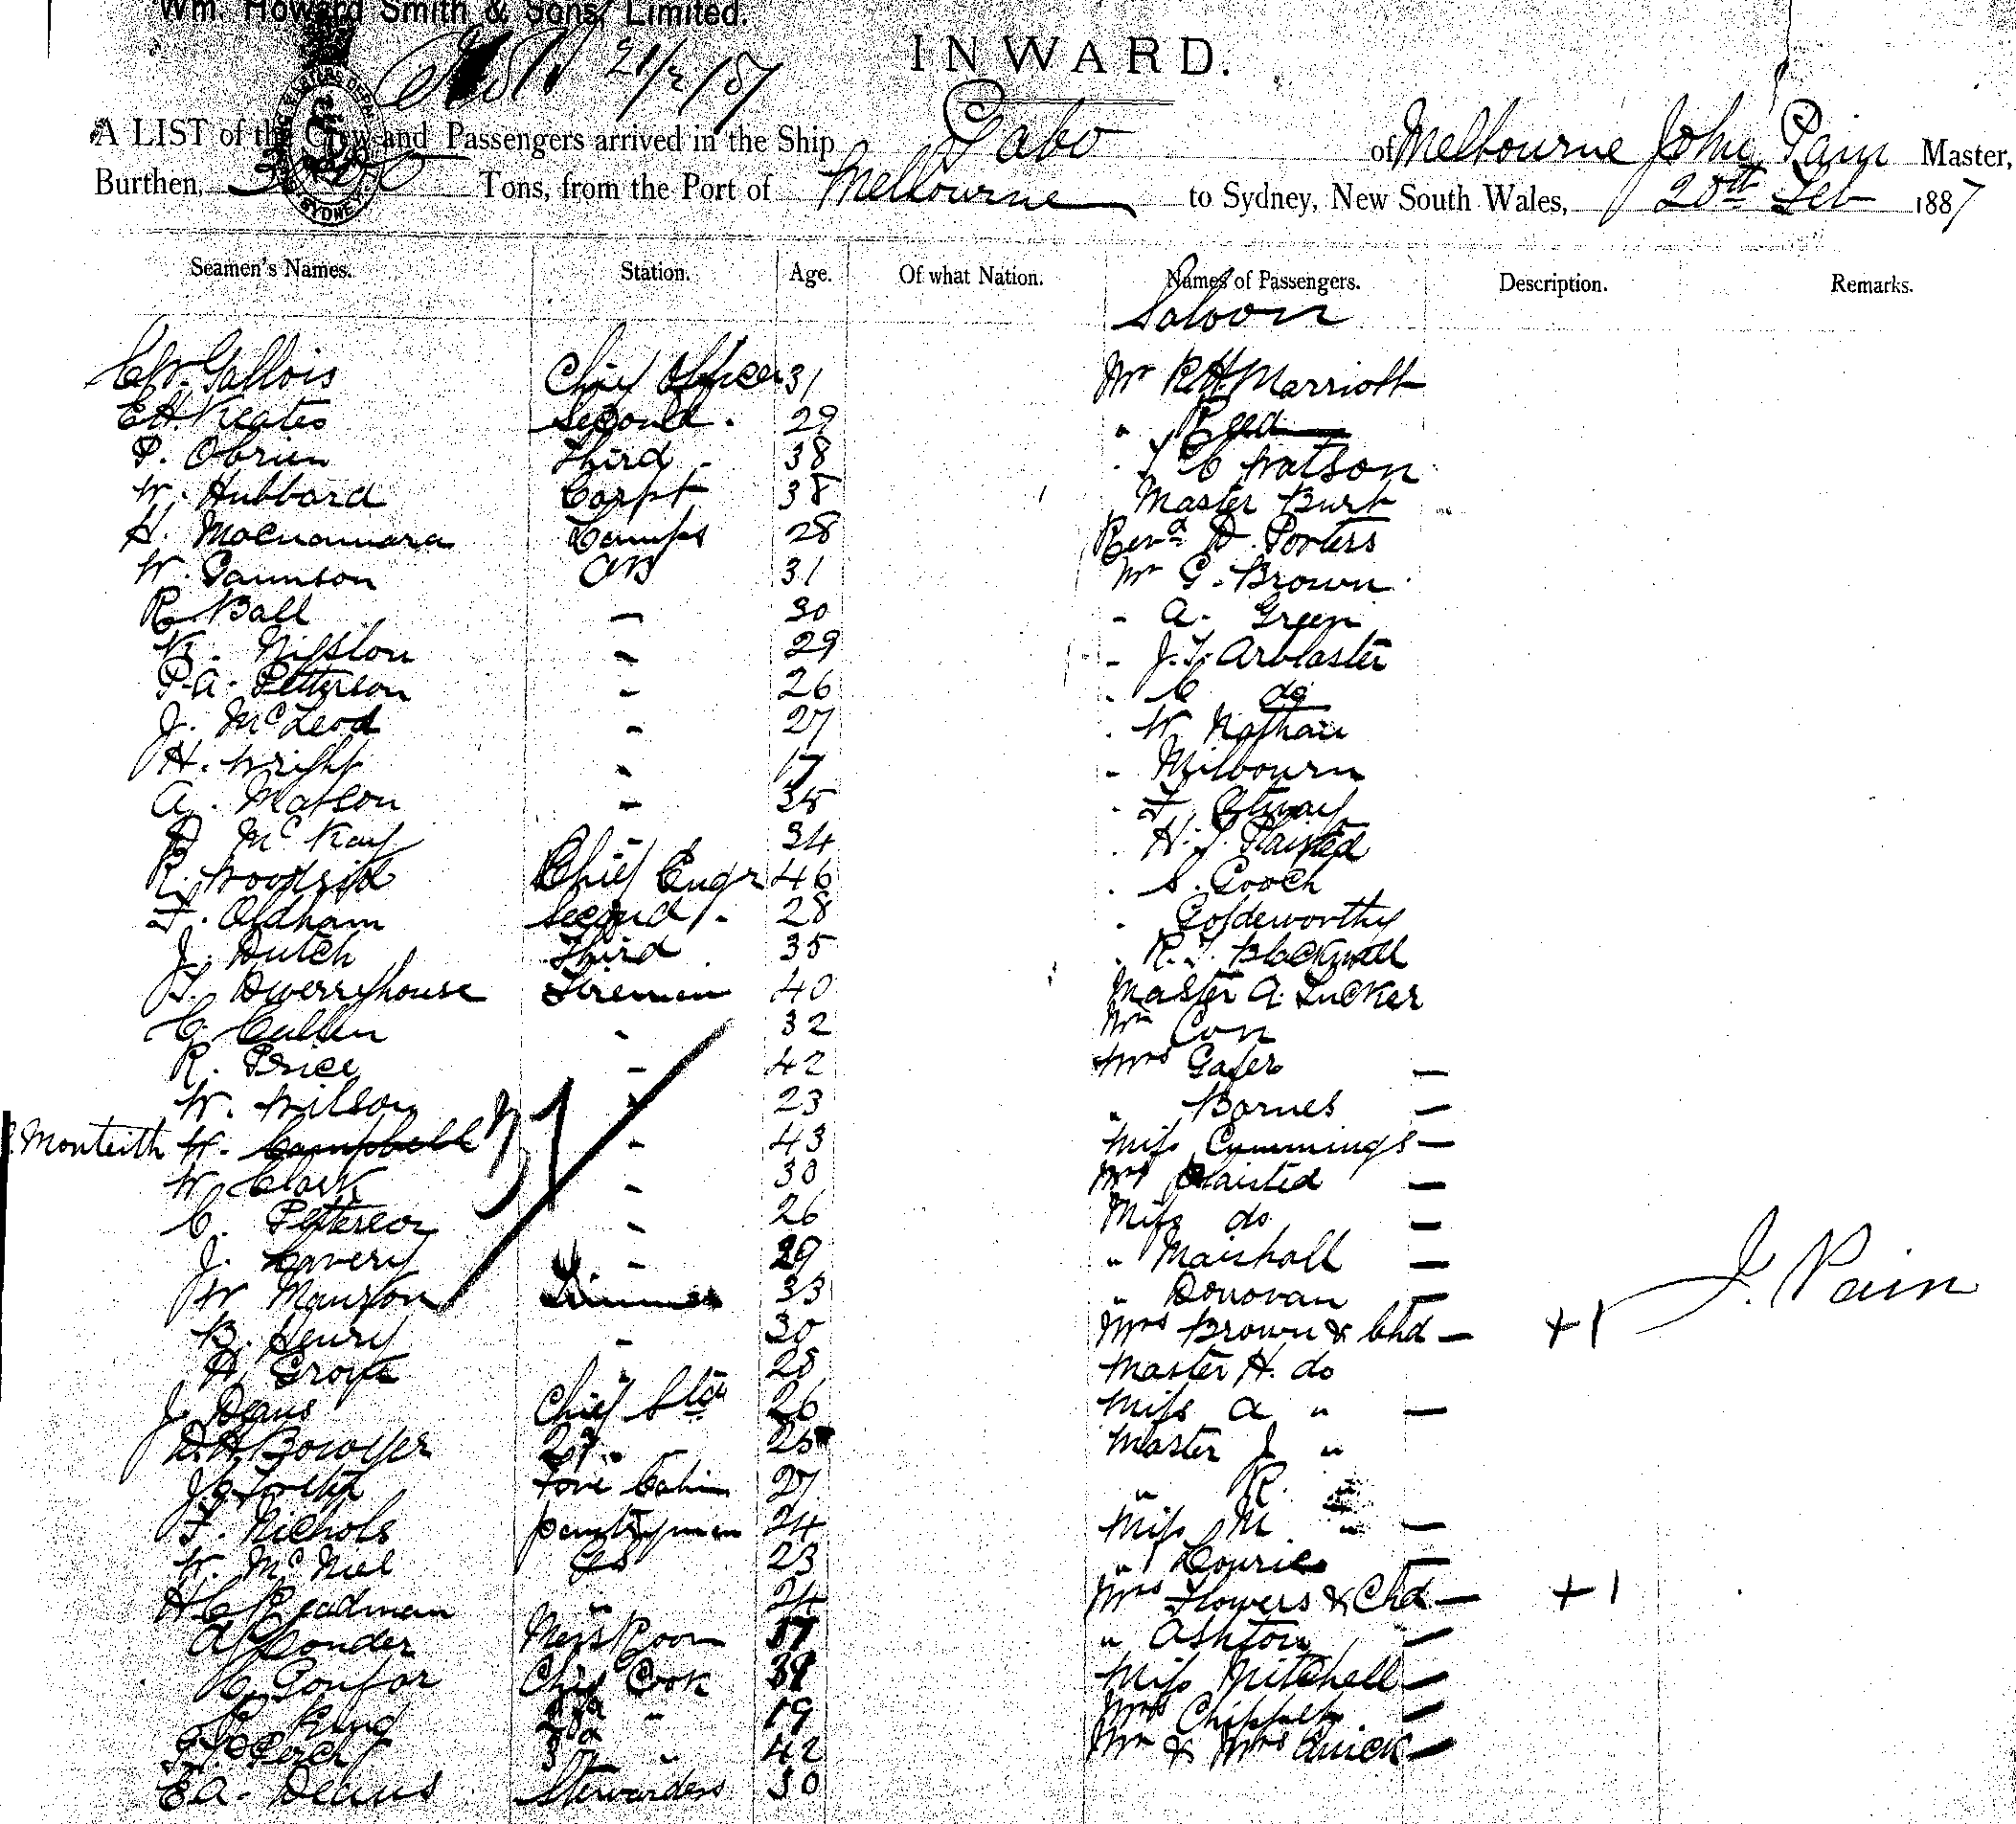 Wm. Howard Smith & Sons, Limited.
21/2/87
INWARD.
A LIST of the Crew and Passengers arrived in the Ship Gabo of Melbourne John Pain Master,
Burthen, Tons, from the Port of Melbourne to Sydney, New South Wales, 20th Feb 1887
Seamen's Names. Station. Age. Of what Nation. Names of Passengers. Description. Remarks.
Saloon
C.W. Gallois Chief Officer 31 Mr R.H. Marriott
E.H. Keates Second " 29 " Reed
P. Obrien Third " 38 " C Watson
W. Hubbard Carpt 38 Master Burt
H. Macnamara Lamps 28 Revd D. Porters
W. Paunson AB 31 Mr G. Brown
R Ball " 30 " A. Green
Nifslon " 29 " J.T. Arblaster
P.A. Petterson " 26 " C do
J. McLeod " 27 " W. Nathan
H. Wright " 17 " Milbourn
A. Matson " 35 "
D McKay " 34 " H. J. Plaisted
R. Woodsid Chief Engr 46 " S. Gooch
F. Oldham Second " 28 " Goldsworthy
J. Dutch Third 35 " R. J. Blackwell
T. Dwerryhouse Firemen 40 Master A. Tucker
C. Cullen " 32 Mr Con
R. Price " 42 Mrs —
W. Wilson " 23 " Barnes —
Monteith W. Campbell " 43 Miss Cummings —
31
W. Clark " 30 Mrs Plaisted —
C. Petterson " 26 Miss do —
J. Cavery " 29 " Marshall —
W Manson Trimmer 33 " Donovan —
B. Henry " 30 Mrs Brown & Chd — +1
J. Pain
H. 28 Master H. do
J. Deans Chief Std 26 Miss A " —
D.H. Bowyer 2d " 25 Master J "
J Fore Cabin 27 " R. "
F. Nichols pantryman 24 Miss M " —
W. McNiel GS 23 " —
H C Readman " 24 Mrs Flowers & Chd — +1
A Conder Mess Room 37 " Ashton —
C. Chief Cook 39 Miss Mitchell —
King 2d " 19 Mrs —
3d " 42 Mr & Mrs Quick —
E.A. Deans Stewardess 30